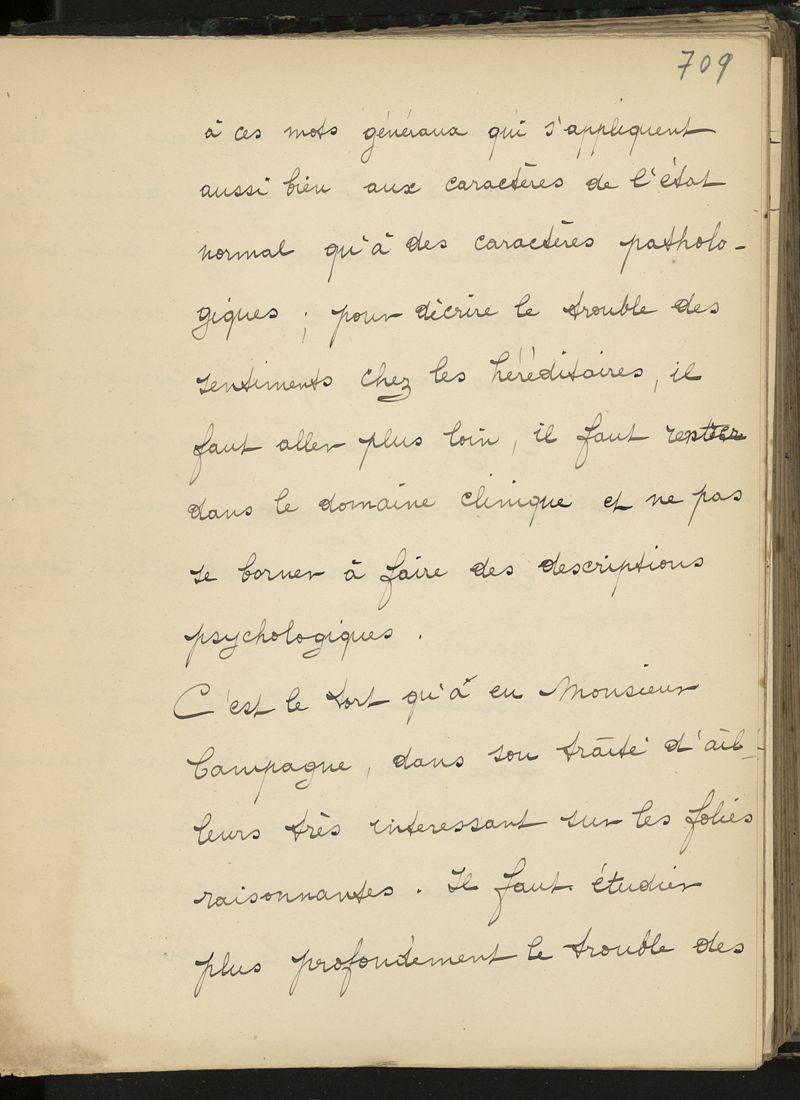 709
à ces mots généraux qui s'appliquent
aussi bien aux caractères de l'état
normal qu'à des caractères patholo-
giques ; pour décrire le trouble des
sentiments chez les héréditaires, il
faut aller plus loin, il faut rester
dans le domaine clinique et ne pas
se borner à faire des descriptions
psychologiques .
C'est le tort qu'à eu Monsieur
Campagne, dans son traité d'ail-
leurs très interessant sur les folies
raisonnantes . Il faut étudier
plus profondément le trouble des